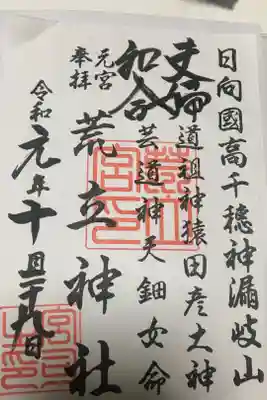 日向國高千穂神漏岐山
夫婦
道祖神猿田彦大神
和合
芸道神天鈿女命
元宮
奉拝
荒立神社
令和元年十月二十九日
荒立宮印